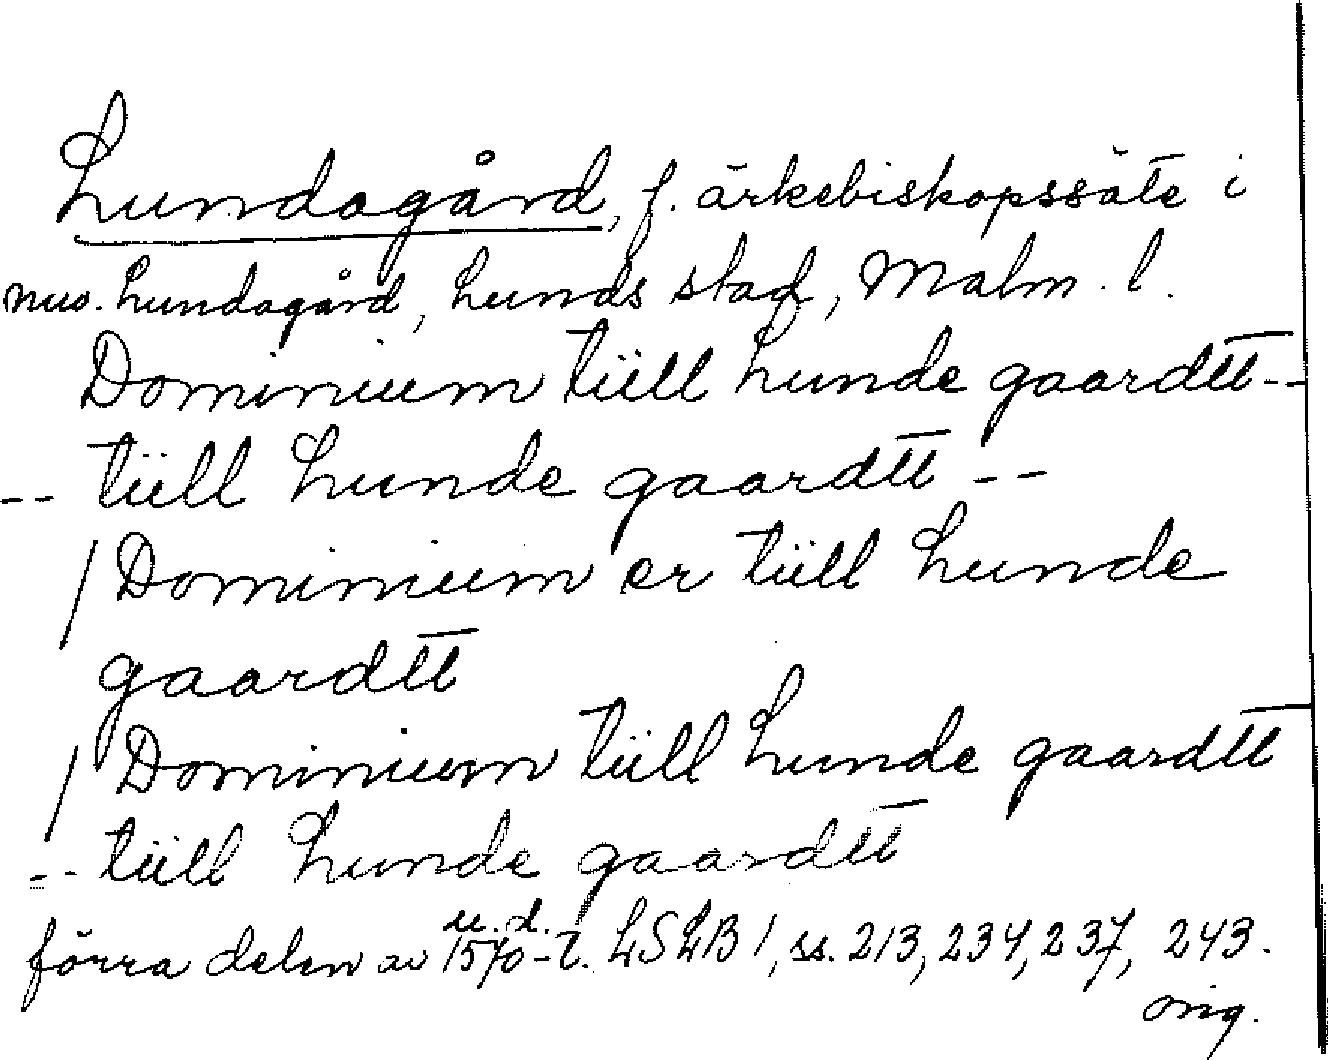 Lundagård, f. ärkebiskopssäte i
nuv. Lundagård, Lunds stad, Malm. l.
Dominium tüll Lunde gaardtt --
-- tüll Lunde gaardtt --
/ Dominium er tüll Lunde
gaardtt
/ Dominium tüll Lunde gaardtt
-- tüll Lunde gaardtt
u. d.
förra delen av 1570-t. LSLB 1, ss. 213, 234, 237, 243.
orig.